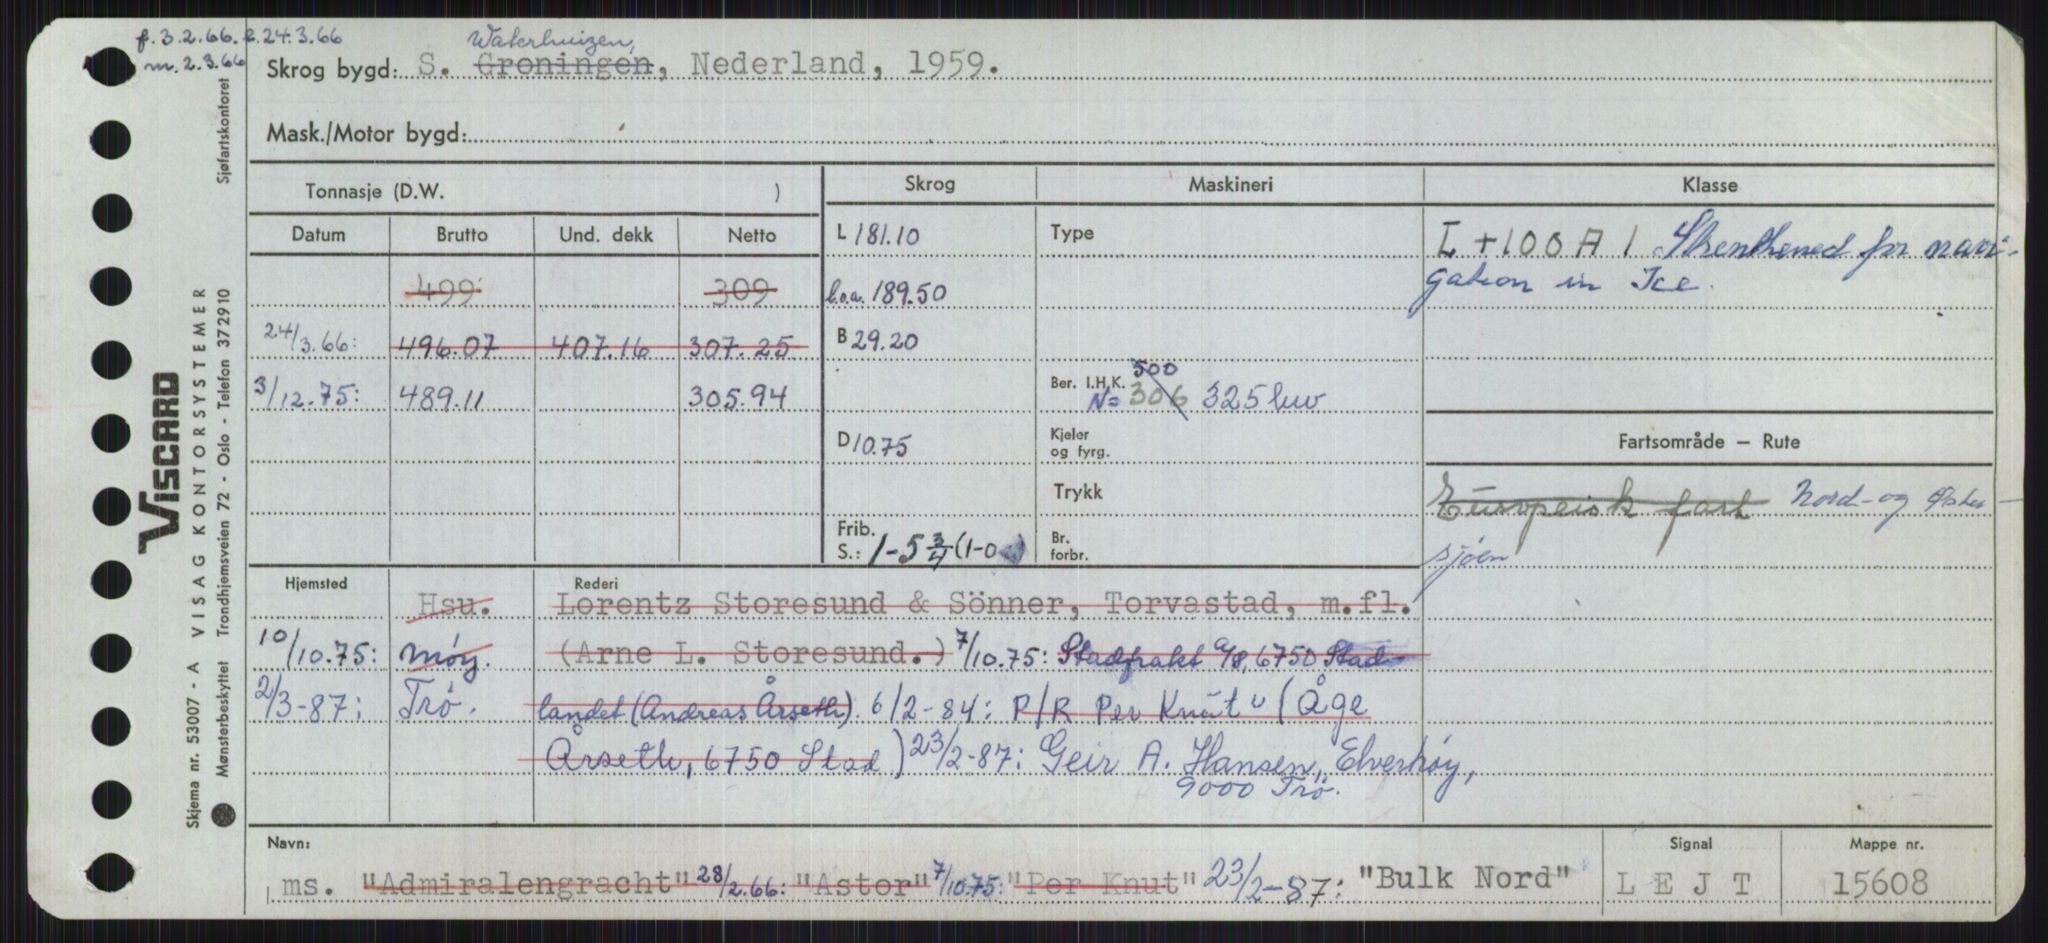 f. 3.2.66. e. 24.3.66
m. 2.3.66
Waterhuizen,
Skrog bygd: S. Groningen, Nederland, 1959.
Mask./Motor bygd:
Tonnasje (D.W. )
Skrog Maskineri Klasse
Datum Brutto Und. dekk Netto
499 309
24/3.66: 496.07 407.16 307.25
3/12.75: 489.11 305.94
L 181.10
l.o.a. 189.50
B 29.20
D 10.75
Frib.
S.: 1-5 3/4 (1-0
Type
500
Ber. I.H.K.
N= 306 325 luv
Kjeler
og fyrg.
Trykk
Br.
forbr.
I +100 A 1 Strenthened for navi-
gation in Ice.
Fartsområde – Rute
Europeisk fart Nord- og Øster-
sjøen
Hjemsted Rederi
Hsu. Lorentz Storesund & Sönner, Torvastad, m.fl.
10/10.75: Møy. (Arne L. Storesund.) 7/10.75: Stadfrakt a/s, 6750 Stad-
2/3-87: Trø. landet (Andreas Årseth). 6/2-84: P/R Per Knut (Åge
Årseth, 6750 Stad) 23/2-87: Geir A. Hansen, Elverhøy,
9000 Trø.
Navn: Signal Mappe nr.
ms. "Admiralengracht" 28/2.66: "Astor" 7/10.75: "Per Knut" 23/2-87: "Bulk Nord" LEJT 15608
Skjema nr. 53007 - A VISAG KONTORSYSTEMER Sjøfartskontoret
Mønsterbeskyttet Trondhjemsveien 72 - Oslo - Telefon 372910
VISCARD